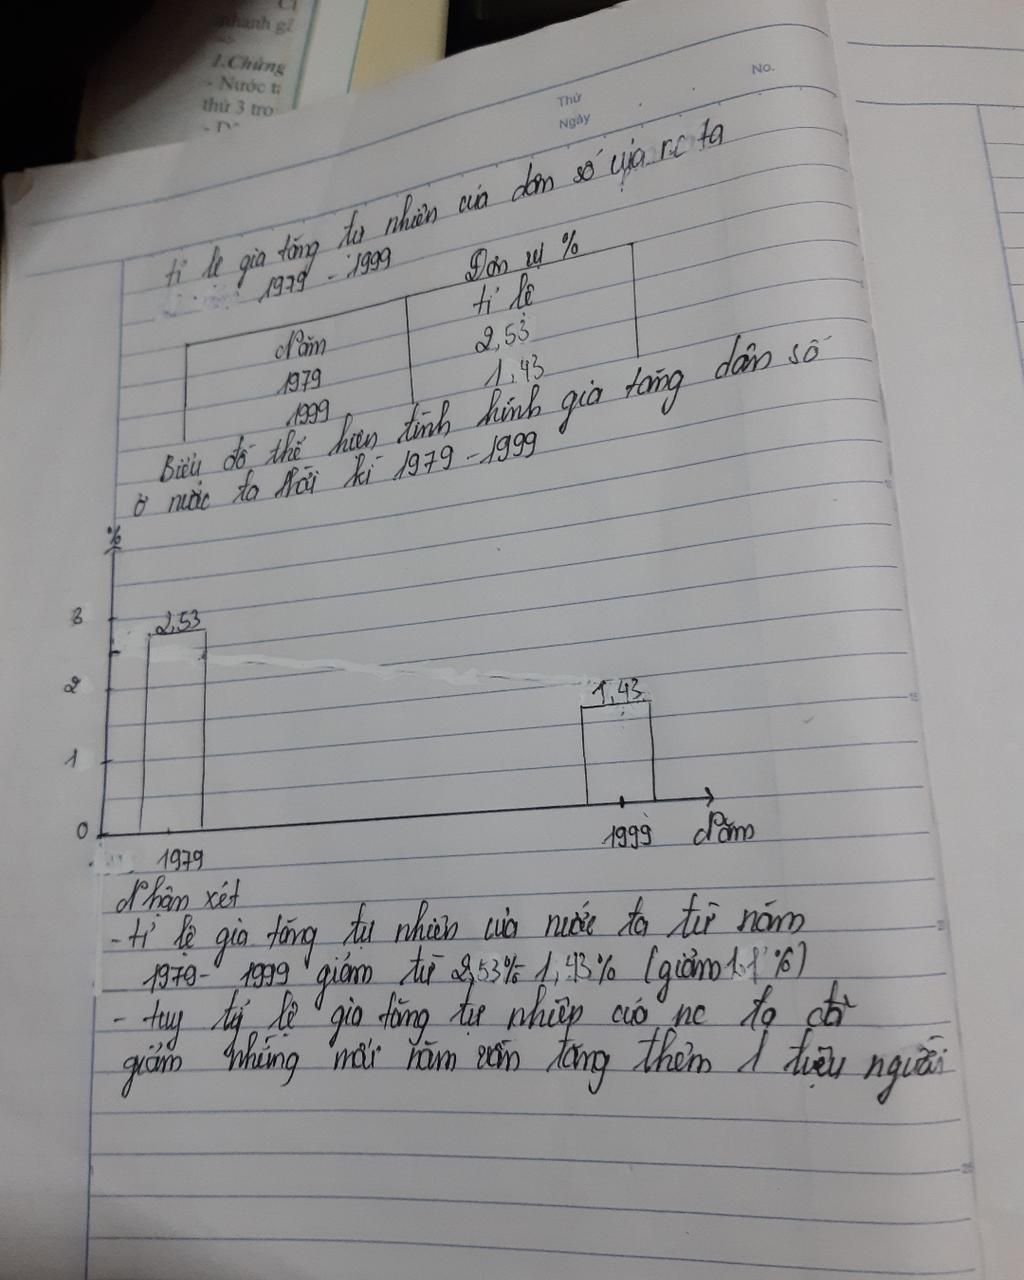 nhanh gi
1.Chứng
- Nước t
thứ 3 tro
Thứ
Ngày
No.
tỉ lệ gia tăng tự nhiên của dân số của nc ta
1979 - 1999
Đơn vị %
Năm
tỉ lệ
1979
2,53
1999
1,43
Biểu đồ thể hiện tình hình gia tăng dân số
ở nước ta thời kì 1979 - 1999
%
3
2,53
2
1,43
1
0
1979
1999
Năm
Nhận xét
- tỉ lệ gia tăng tự nhiên của nước ta từ năm
1979- 1999 giảm từ 2,53% 1,43% (giảm 1.1 %)
- tuy tỷ lệ gia tăng tự nhiên của nc ta đã
giảm nhưng mỗi năm vẫn tăng thêm 1 triệu người